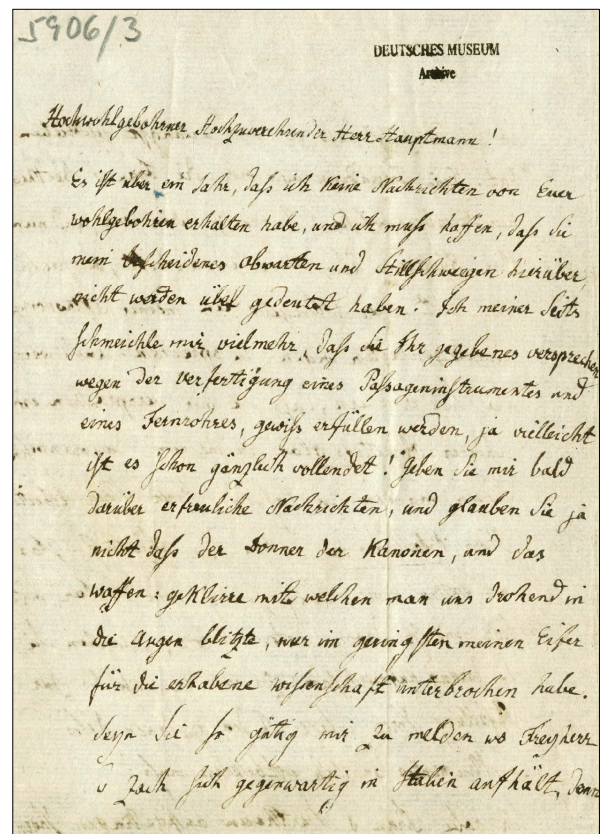 5906/3
DEUTSCHES MUSEUM
Archive
Hochwohlgebohrner, Hochzuverehrender Herr Hauptmann!
Es ist über ein Jahr, daß ich keine Nachrichten von Euer
wohlgebohren erhalten habe, und ich muß hoffen, daß Sie
mein bescheidenes abwarten und Stillschweigen hierüber,
nicht werden übel gedeutet haben. Ich meiner Seits
schmeichle mir vielmehr, daß Sie Ihr gegebenes versprechen
wegen der verfertigung eines Passageninstrumentes und
eines Fernrohres, gewiß erfüllen werden, ja vielleicht
ist es schon gänzlich vollendet! geben Sie mir bald
darüber erfreuliche Nachrichten, und glauben Sie ja
nicht daß der Donner der Kanonen, und das
waffen=geklirre mit welchen man uns drohend in
die augen blitzte, nur im geringsten meinen Eifer
für die erhabene wissenschaft unterbrochen habe.
Seyn Sie so gütig mir zu melden wo Freyherr
v Zach sich gegenwartig in Italien aufhält, denn